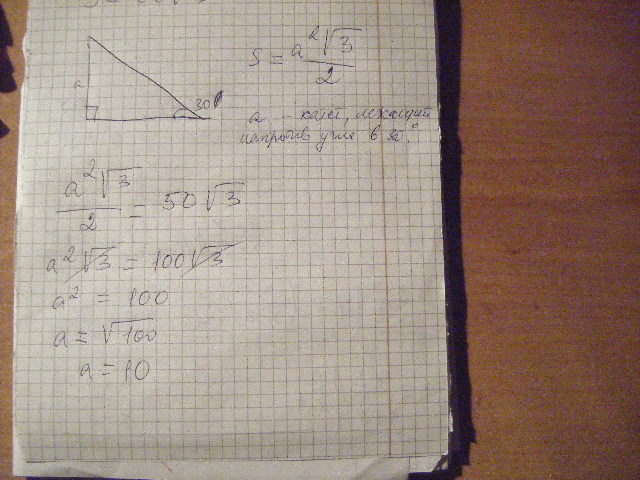 a
30°
S = a²√3 / 2
a - катет, лежащий
напротив угла в 30°.
a²√3 / 2 = 50√3
a²√3 = 100√3
a² = 100
a = √100
a = 10